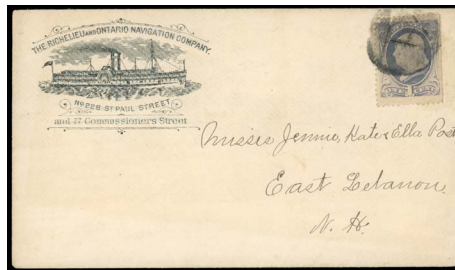 THE RICHELIEU AND ONTARIO NAVIGATION COMPANY.
No 228 St PAUL STREET
and 77 Commissioners Street
Misses Jennie, Kate & Ella Post
East Lebanon,
N. H.